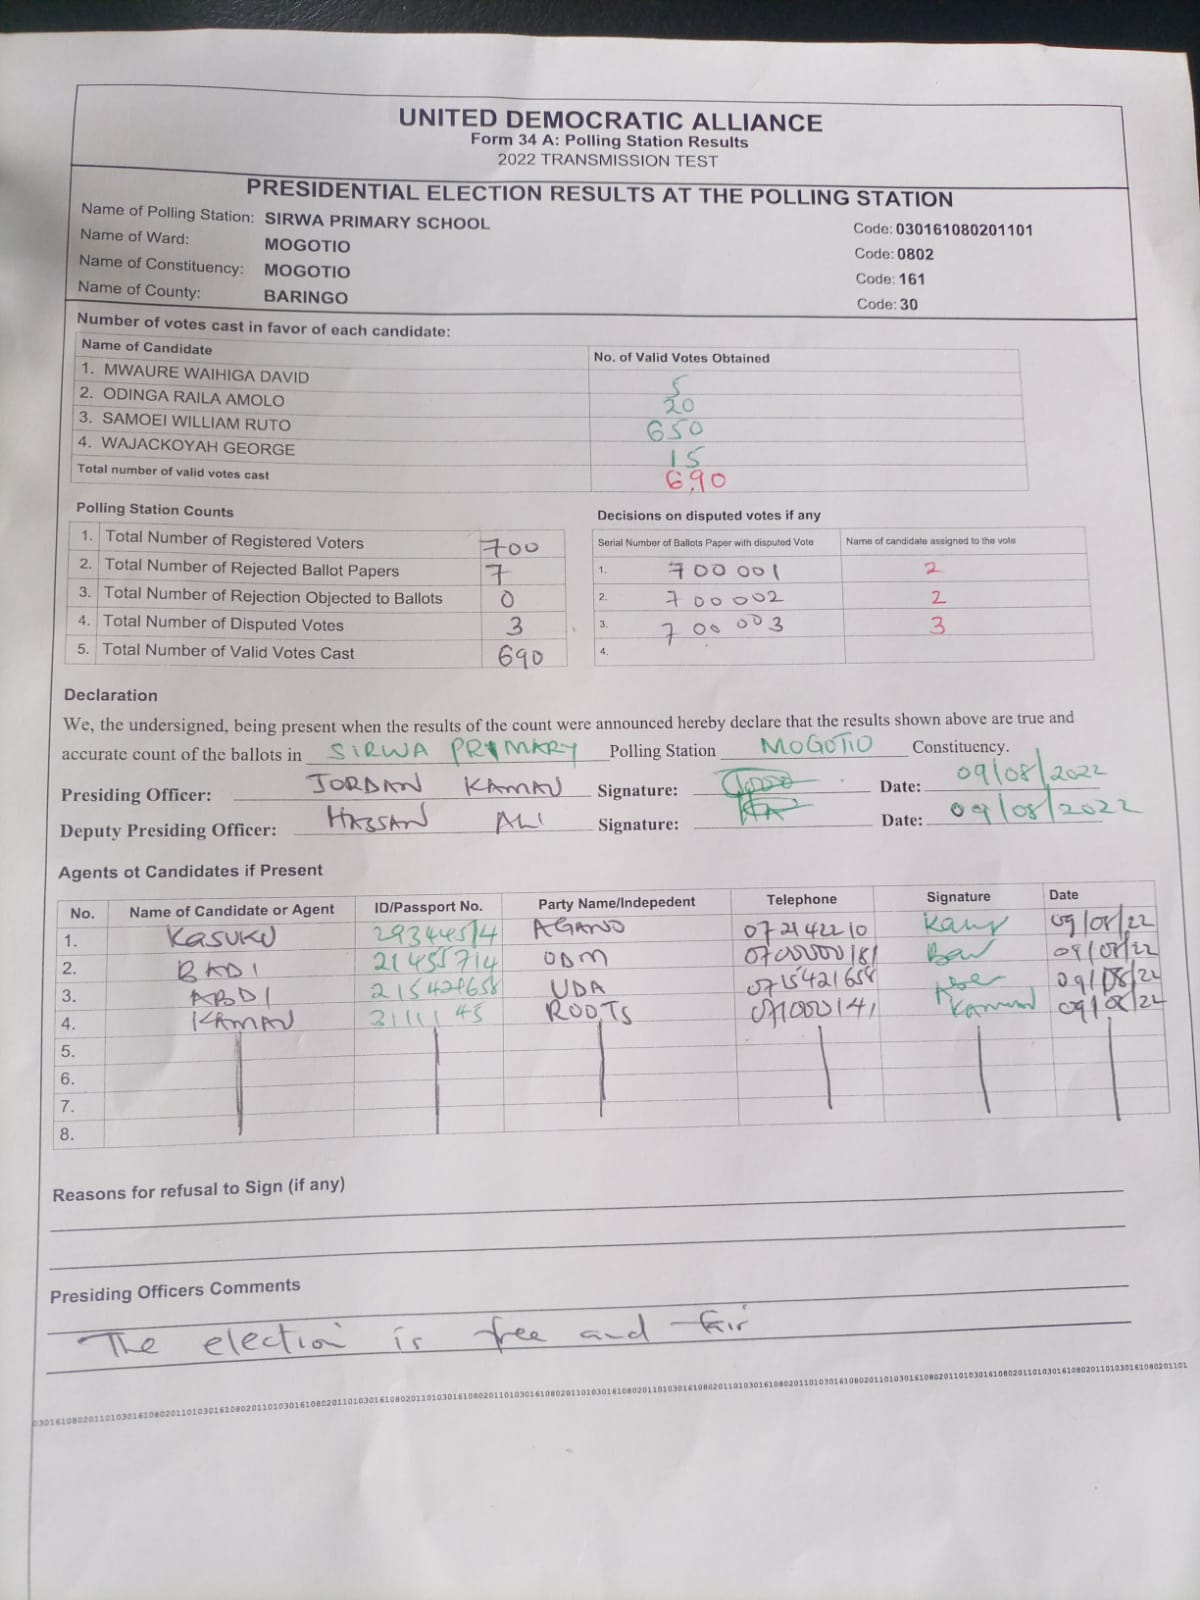 UNITED DEMOCRATIC ALLIANCE
Form 34 A: Polling Station Results
2022 TRANSMISSION TEST
PRESIDENTIAL ELECTION RESULTS AT THE POLLING STATION
Name of Polling Station: SIRWA PRIMARY SCHOOL Code: 030161080201101
Name of Ward: MOGOTIO Code: 0802
Name of Constituency: MOGOTIO Code: 161
Name of County: BARINGO Code: 30
Number of votes cast in favor of each candidate:
Name of Candidate No. of Valid Votes Obtained
1. MWAURE WAIHIGA DAVID 5
2. ODINGA RAILA AMOLO 20
3. SAMOEI WILLIAM RUTO 650
4. WAJACKOYAH GEORGE 15
Total number of valid votes cast 690
Polling Station Counts
1. Total Number of Registered Voters 700
2. Total Number of Rejected Ballot Papers 7
3. Total Number of Rejection Objected to Ballots 0
4. Total Number of Disputed Votes 3
5. Total Number of Valid Votes Cast 690
Decisions on disputed votes if any
Serial Number of Ballots Paper with disputed Vote Name of candidate assigned to the vote
1. 700 001 2
2. 700 002 2
3. 700 003 3
4.
Declaration
We, the undersigned, being present when the results of the count were announced hereby declare that the results shown above are true and
accurate count of the ballots in SIRWA PRIMARY Polling Station MOGOTIO Constituency.
Presiding Officer: JORDAN KAMAU Signature: Date: 09/08/2022
Deputy Presiding Officer: HASSAN ALI Signature: Date: 09/08/2022
Agents ot Candidates if Present
No. Name of Candidate or Agent ID/Passport No. Party Name/Indepedent Telephone Signature Date
1. KASUKU 29344514 AGANO 072142210 09/08/22
2. BADI 21455714 ODM 0700000181 09/08/22
3. ABDI 215424658 UDA 0715421658 09/08/22
4. KAMAU 311145 ROOTS 071000141 09/08/22
5.
6.
7.
8.
Reasons for refusal to Sign (if any)
Presiding Officers Comments
The election is free and fair